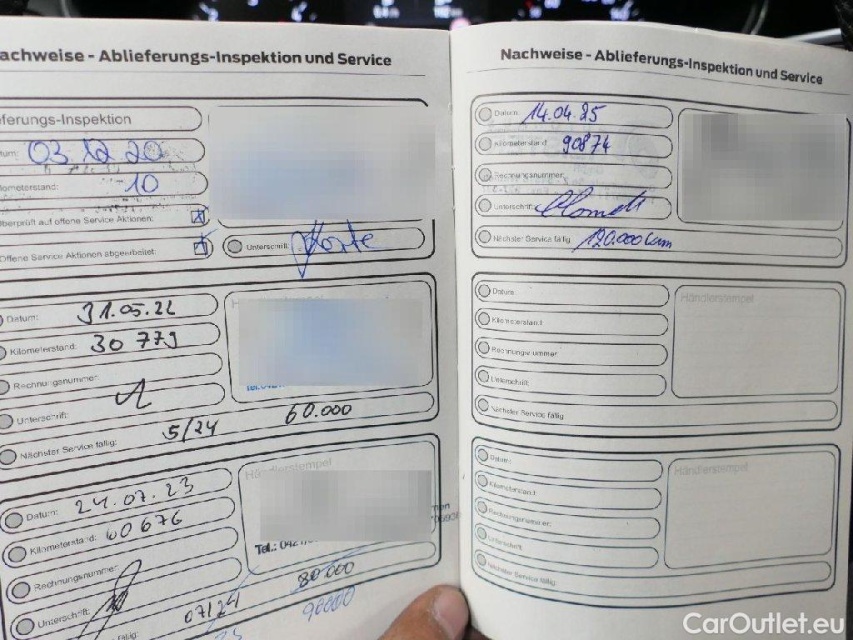 achweise - Ablieferungs-Inspektion und Service
ferungs-Inspektion
tum: 03.12.20
lometerstand: 10
berprüft auf offene Service Aktionen: x
Offene Service Aktionen abgearbeitet: x
Unterschrift: Korte
Datum: 31.05.22
Händlerstempel
Kilometerstand: 30 779
Rechnungsnummer:
Unterschrift:
Nächster Service fällig: 5/24 60.000
Datum: 24.07.23
Händlerstempel
Kilometerstand: 60676
Rechnungsnummer:
Tel.: 042
Unterschrift:
fällig: 07/24 80.000
90000
Nachweise - Ablieferungs-Inspektion und Service
Datum: 14.04.25
Kilometerstand: 90874
Rechnungsnummer:
Unterschrift:
Nächster Service fällig 120.000 km
Datum:
Händlerstempel
Kilometerstand:
Rechnungsnummer:
Unterschrift:
Nächster Service fällig
Datum:
Händlerstempel
Kilometerstand:
Rechnungsnummer:
Unterschrift
Nächster Service fällig:
CarOutlet.eu